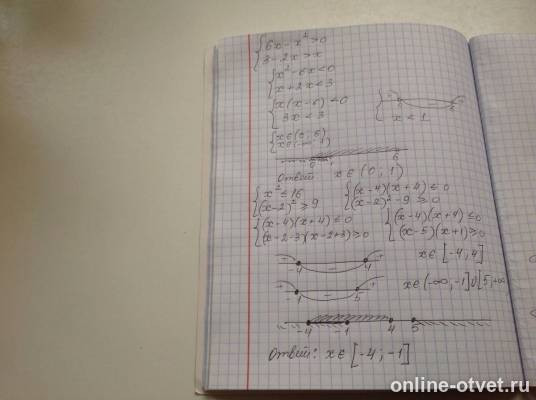 { 6x - x² > 0
{ 3 - 2x > x
{ x² - 6x < 0
{ x + 2x < 3
{ x(x-6) < 0
{ 3x < 3
{ x < 1
{ x ∈ (0; 6)
{ x ∈ (-∞; 1)
0 1 6
Ответ x ∈ (0; 1)
{ x² ≤ 16
{ (x-2)² ≥ 9
{ (x-4)(x+4) ≤ 0
{ (x-2)² - 9 ≥ 0
{ (x-4)(x+4) ≤ 0
{ (x-2-3)(x-2+3) ≥ 0
{ (x-4)(x+4) ≤ 0
{ (x-5)(x+1) ≥ 0
+ -4 - 4 +
x ∈ [-4; 4]
+ 1 - 5 +
x ∈ (-∞; -1] ∪ [5; +∞
-4 -1 4 5
Ответ: x ∈ [-4; -1]
online-otvet.ru